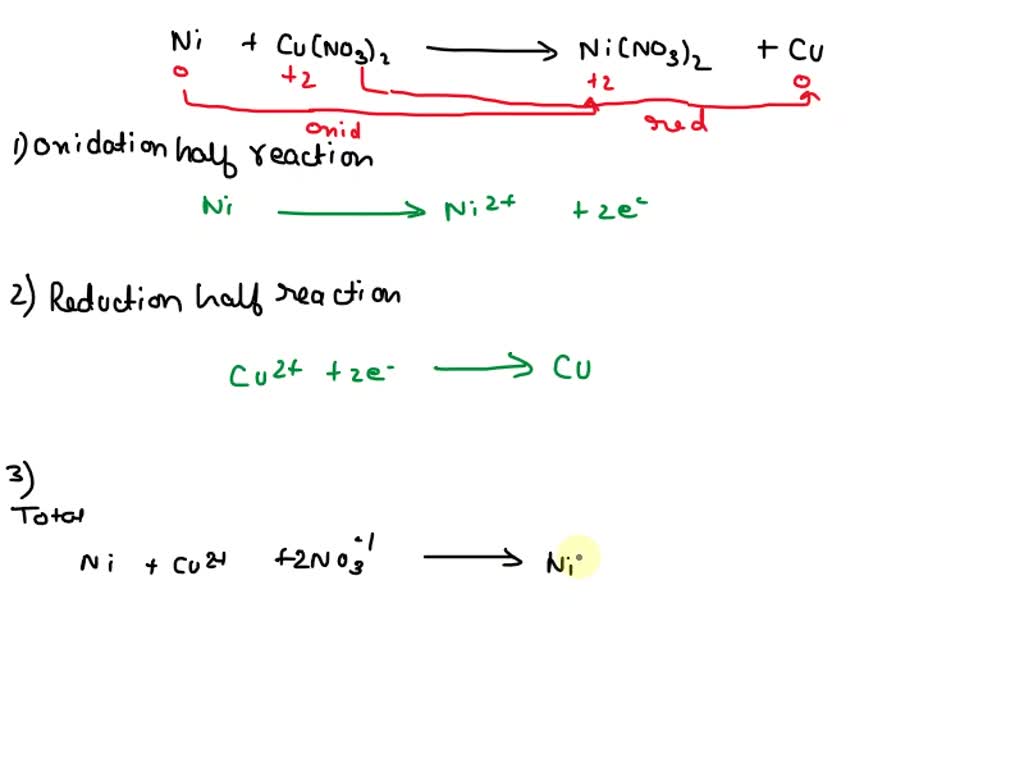 Ni + Cu(NO3)2 ⟶ Ni(NO3)2 + Cu
0 +2 +2 0
onid red
1) Onidation half reaction
Ni ⟶ Ni2+ + 2e-
2) Reduction half reaction
Cu2+ + 2e- ⟶ Cu
3)
Total
Ni + Cu2+ + 2NO3-1 ⟶ Ni